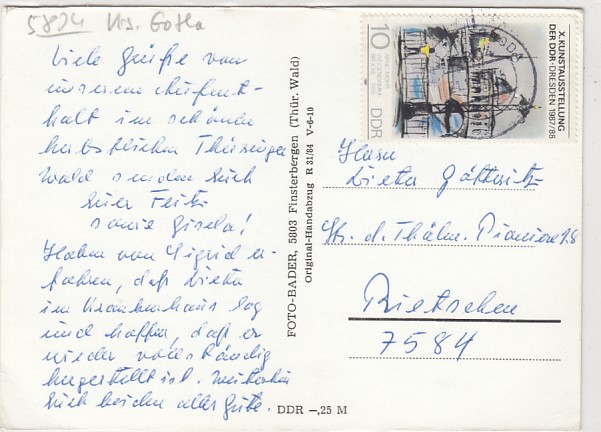 5824 Krs. Gotha
Viele Grüße von
unserem Aufent-
halt im schönen
herbstlichen Thüringer
Wald senden Euch
Euer Fritz
sowie Gisela!
Haben von Sigrid er-
fahren, daß Dieter
im Krankenhaus lag
und hoffen, daß er
wieder vollständig
hergestellt ist. Weiterhin
Euch beiden alles Gute.
FOTO-BADER, 5803 Finsterbergen (Thür. Wald)
Original-Handabzug R 31/84 V-6-10
DDR —,25 M
X. KUNSTAUSSTELLUNG
DER DDR · DRESDEN 1987/88
10
DDR
Herrn
Dieter
Str. d. Thälm. Pioniere 18
Rietschen
7584